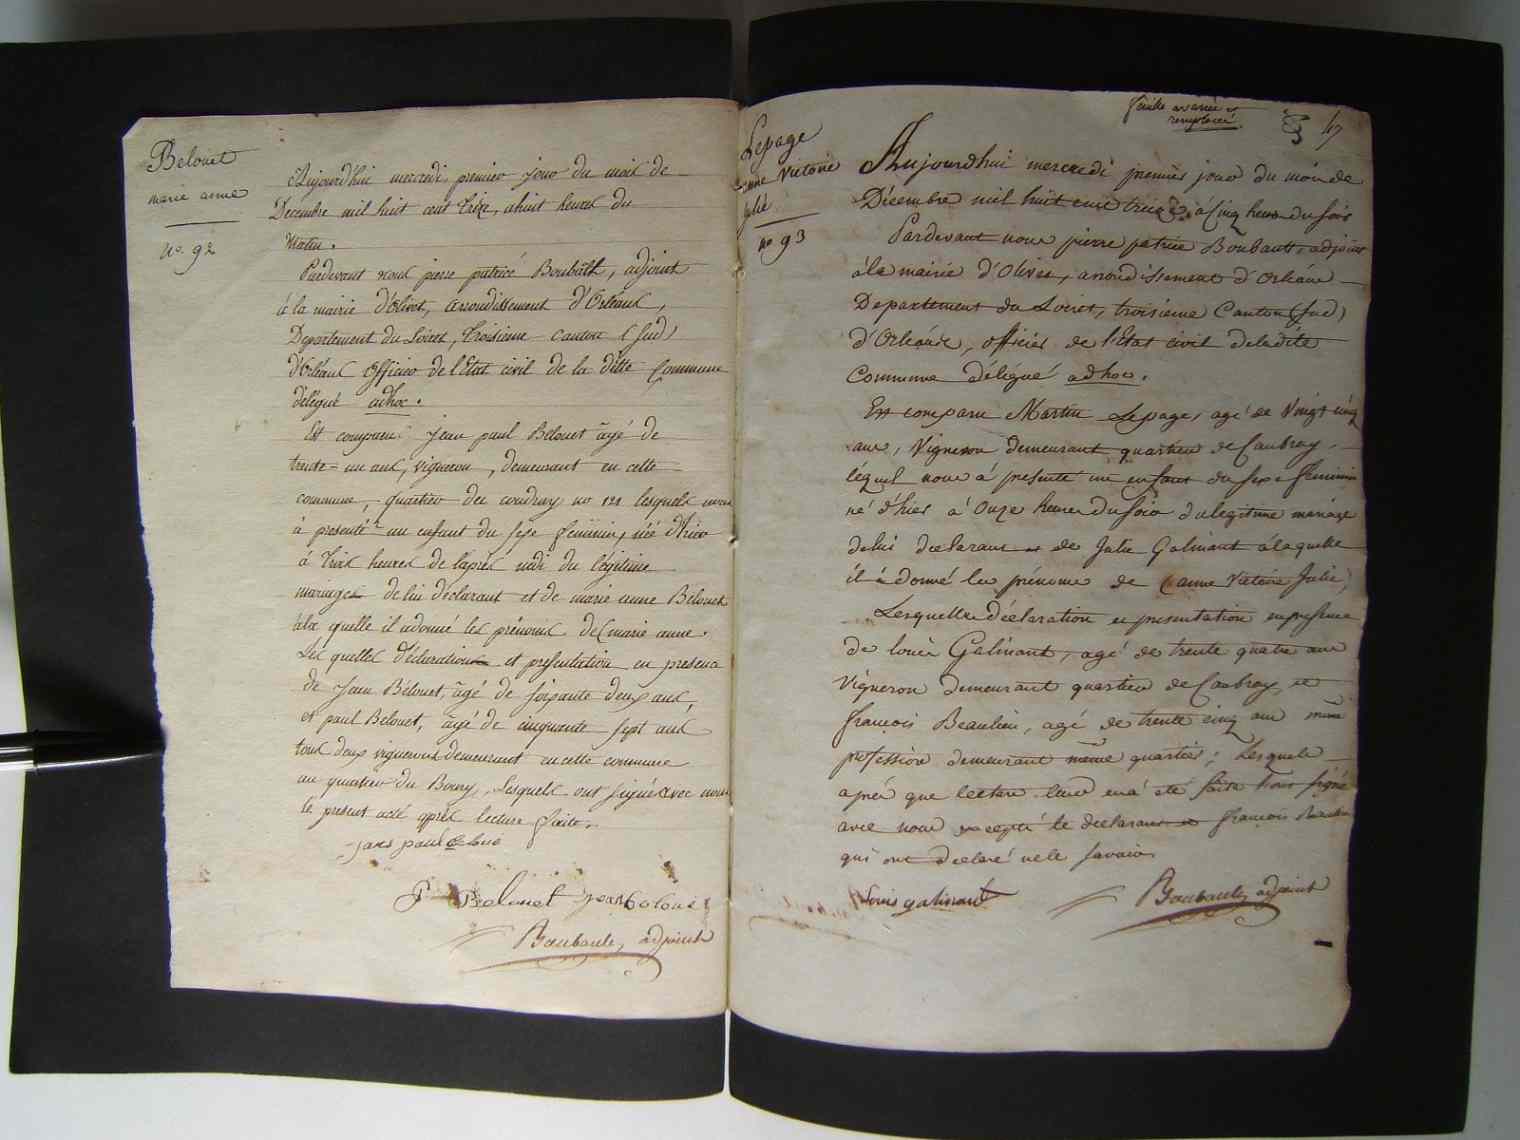 Belouet
marie anne
no. 92
Aujourd'hui mercredi, premier jour du mois de
Decembre mil huit cent treize, a huit heures du
Matin.
Pardevant nous pierre patrice Boubault, adjoint
à la mairie d'Olivet, arrondissement d'Orleans,
Departement du Loiret, troisieme canton (sud)
d'Orleans officier de l'Etat civil de la ditte Commune
délégué adhoc.
Est comparu jean paul Belouet âgé de
trente-un ans, vigneron, demeurant en cette
commune, quartier du coudray no 121 lesquels nous
à presenté un enfant du sexe feminin, née d'hier
à trois heures de l'après midi du légitime
mariage de lui déclarant et de marie anne Belouet
à la quelle il a donné les prénoms de (marie anne.
Les quelles déclaration et presentation en presence
de jean Bélouet, âgé de soixante deux ans,
et paul Belouet, âgé de cinquante sept ans
tous deux vignerons demeurant en cette commune
au quartier du Bourg, Lesquels ont signé avec nous
le present acte après lecture faite.
jans paul
P Belouet jean
Boubault, adjoint
feuille avariée et
remplacée
Lepage
anne Victoire
Julie
no 93
Aujourd'hui mercredi premier jour du mois de
Décembre mil huit cent treize à Cinq heures du soir
Pardevant nous pierre patrice Boubault, adjoint
à la mairie d'Olivet, arrondissement d'Orléans
Departement du Loiret, troisième Canton (sud)
d'Orléans, officier de l'Etat civil de la dite
Commune délégué adhoc.
Est comparu Martin Lepage, agé de Vingt cinq
ans, Vigneron demeurant quartier de Caubray
léquel nous à presenté un enfant du sexe féminin
né d'hier à Onze heures du soir du legitime mariage
de lui declarant et de Julie Galinant à laquelle
il à donné les prénoms de (anne Victoire Julie)
Lesquelles déclaration et presentation en presence
de louis Galinant, agé de trente quatre ans
Vigneron demeurant quartier de Caubray, et
françois Beaulieu, agé de trente cinq ans même
profession demeurant même quartier; Lesquels
après que lecture leur en a été faite ont signé
avec nous excepté le declarant et françois Beaulieu
qui ont declaré ne le savoir
Louis galinant
Boubault, adjoint